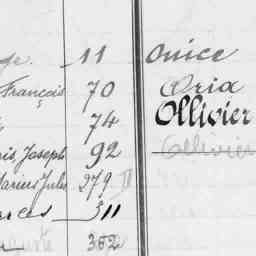 11 Onice
François 70 Oria
74 Ollivier
Joseph 92 Ollivier
Marius Jules 279 II
511
362